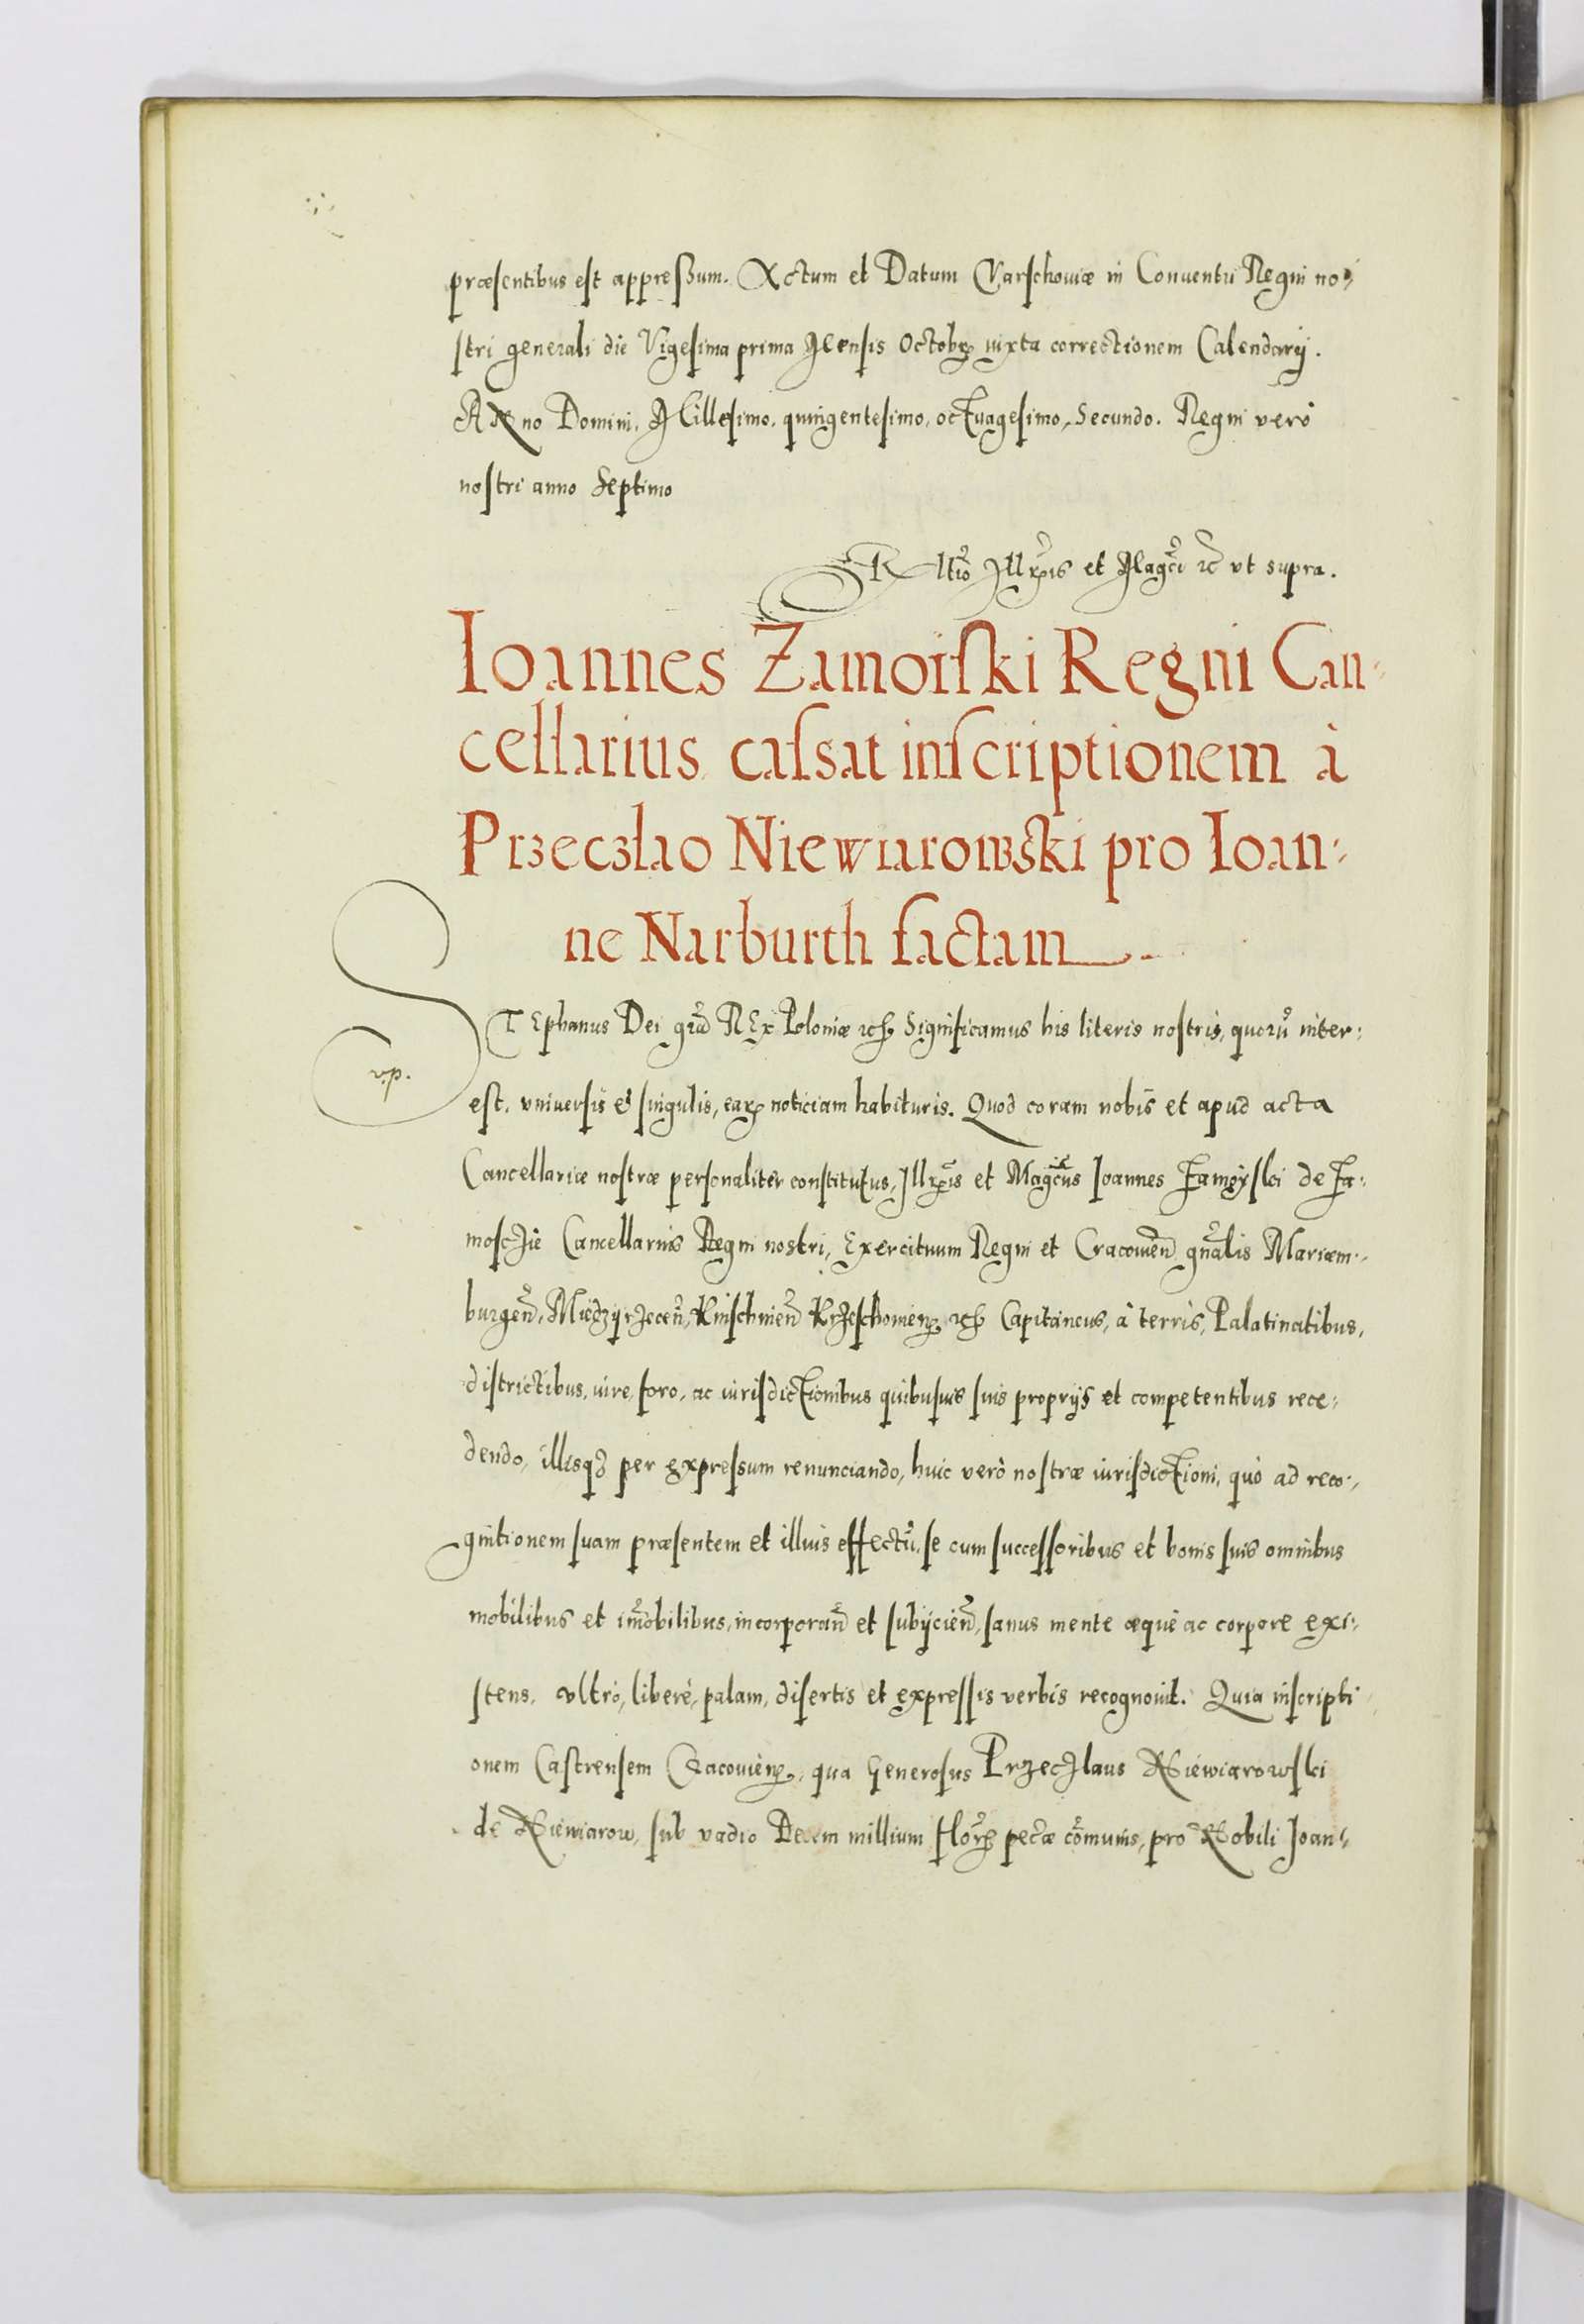 præsentibus est appressum. Actum et Datum Varschoviæ in Conventu Regni no-
stri generali die Vigesima prima Mensis Octobr iuxta correctionem Calendarij.
Anno Domini, Millesimo, quingentesimo, octuagesimo, Secundo. Regni verò
nostri anno Septimo
Rltio Illris et Magci rc vt supra.
Ioannes Zamoiski Regni Can-
cellarius cassat inscriptionem à
Przeczlao Niewiarowski pro Ioan-
ne Narburth factam
v.p.
STEphanus Dei gra REx Poloniæ rc Significamus his literis nostris, quorũ inter-
est, vniuersis et singulis, ear noticiam habituris. Quod coram nobis et apud acta
Cancellariæ nostræ personaliter constitutus, Illris et Magcus Ioannes Zamoyski de Za-
moscZie Cancellarius Regni nostri, Exercituum Regni et Cracouien gnalis Mariæm-
burgen, MiedzyrZecen, Knischinen KrZeschouien rc Capitaneus, à terris, Palatinatibus,
districtibus, iure, foro, ac iurisdictionibus quibusuis suis proprijs et competentibus rece-
dendo, illisq3 per expressum renunciando, huic verò nostræ iurisdictioni, quò ad reco-
gnitionem suam præsentem et illius effectũ, se cum successoribus et bonis suis omnibus
mobilibus et imobilibus, incorporan et subijcien, sanus mente æquè ac corpore exi-
stens, vltrò, liberè, palam, disertis et expressis verbis recognouit. Quia inscripti
onem Castrensem Cracouien, qua Generosus PrzecZlaus Niewiarowski
de Niewiarow, sub vadio Decem millium Flor pecæ comunis, pro Nobili Ioan-